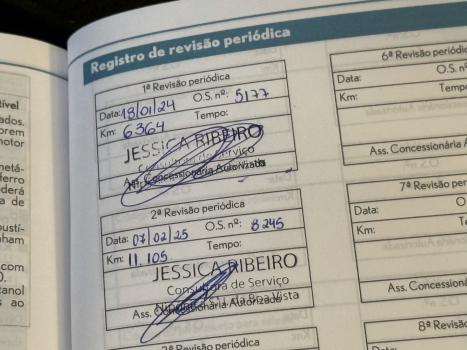 Registro de revisão periódica
1ª Revisão periódica
Data: 18/01/24 O.S. nº: 5177
Km: 6364 Tempo:
JESSICA RIBEIRO
Consultora de Serviço
Ass. Concessionária Autorizada
2ª Revisão periódica
Data: 07/02/25 O.S. nº: 8245
Km: 11.105 Tempo:
JESSICA RIBEIRO
Consultora de Serviço
da Boa Vista
Ass. Concessionária Autorizada
6ª Revisão
Data:
Km: Tempo
Ass. Concessionária
7ª Revisão
Data:
Km:
Ass. Concessioná
8ª Revisão
tível
ados.
orem
motor
metá-
ferro
derá
a de
ustí-
ham
com
anol
s ao